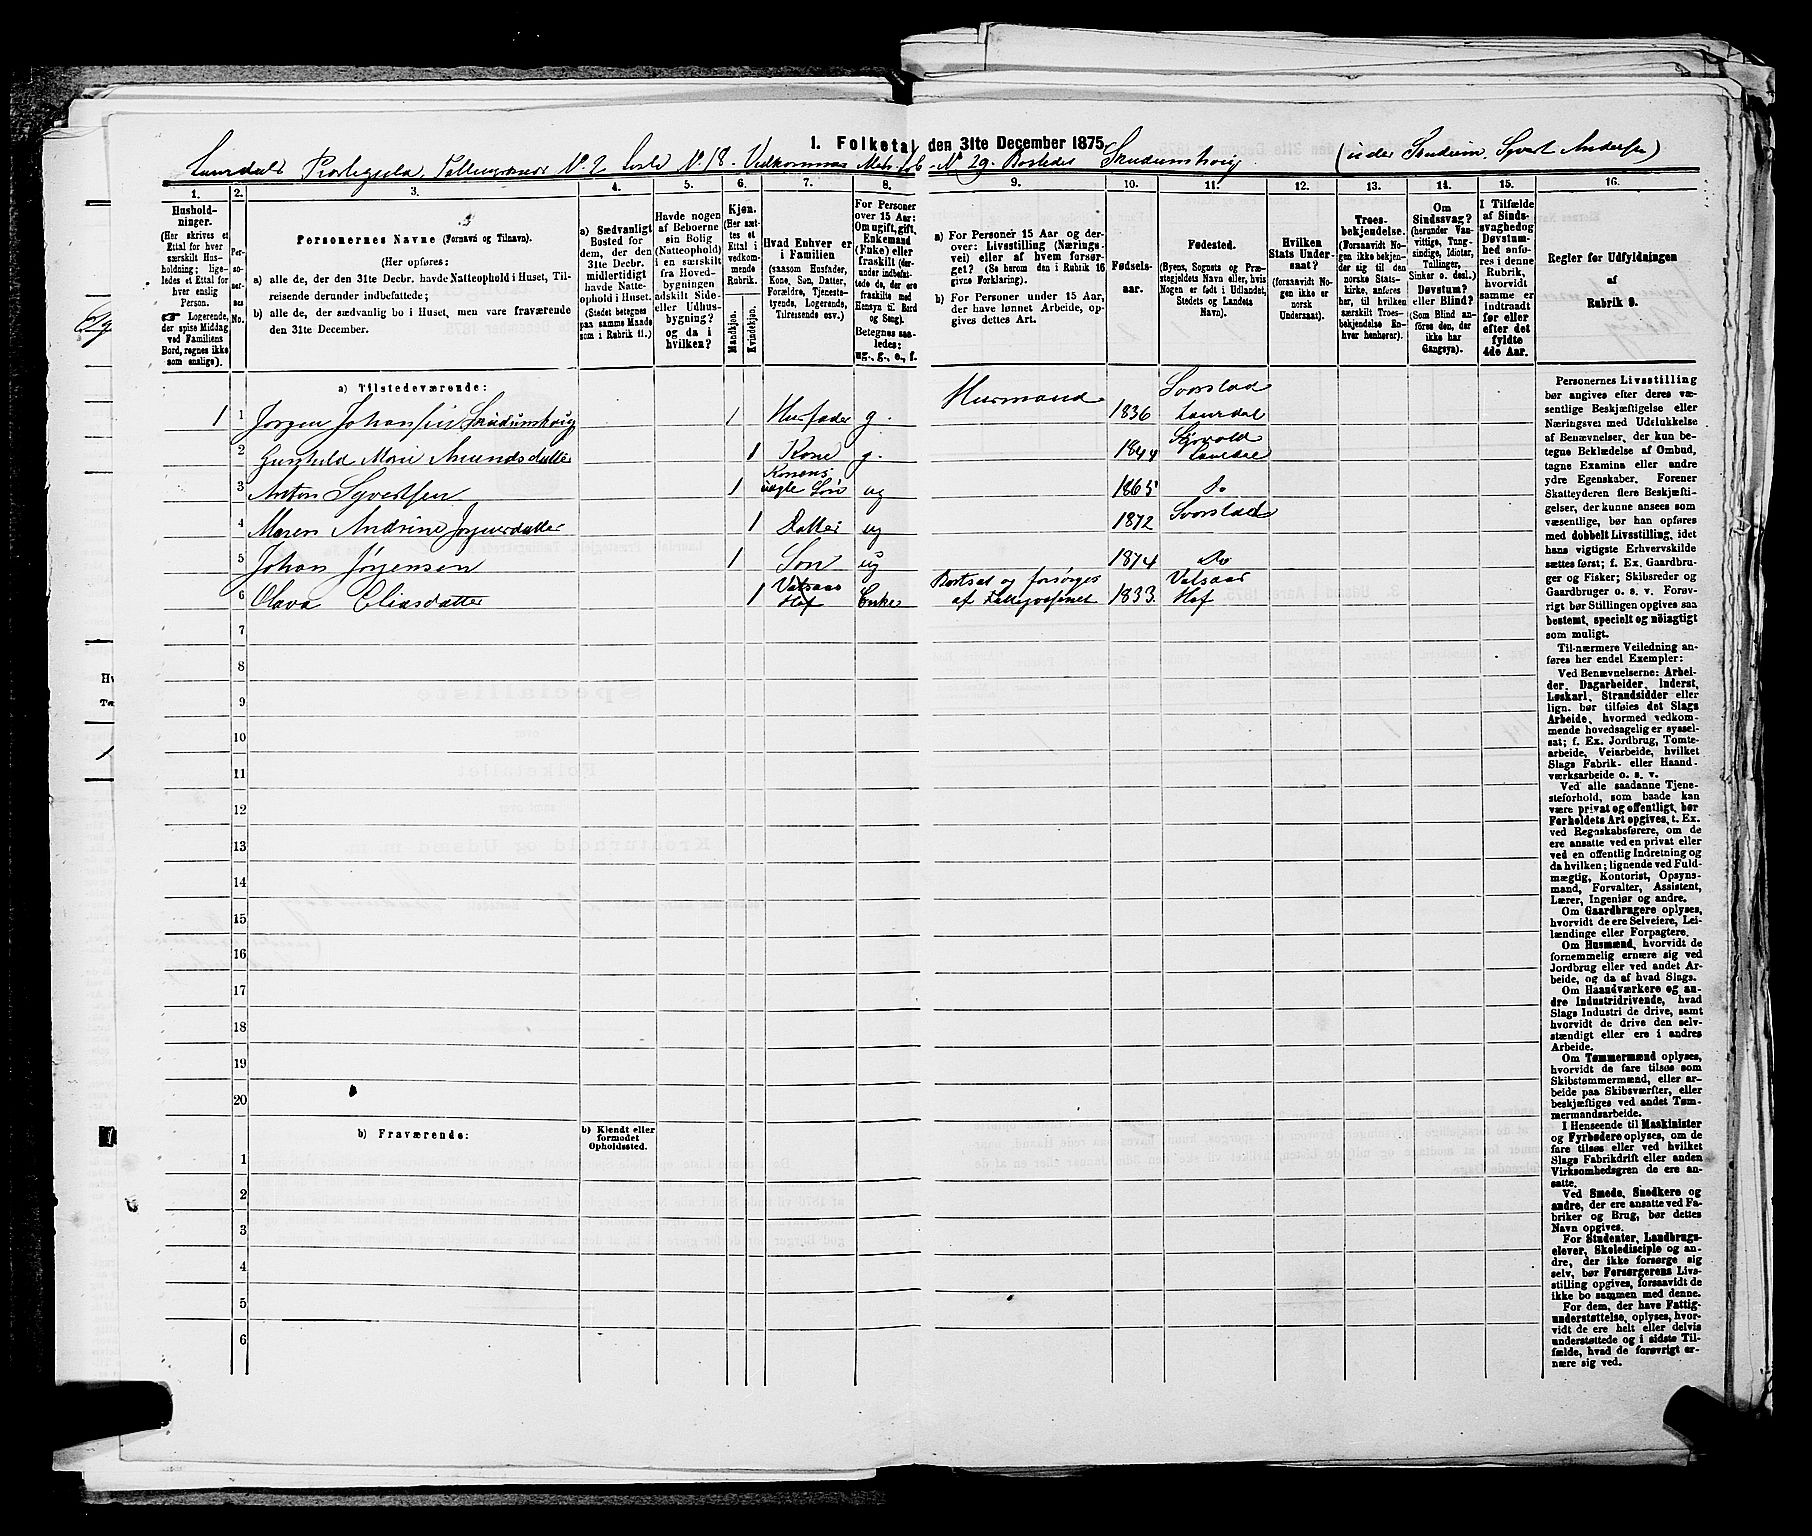 1. Folketal den 31te December 1875
Laurdals Præstegjeld, Tællingskreds No. 2 Liste No. 18. Vedkommende Matr. Løb. No. 29. Bostedet Skudumshoug (under Sundum, Syvert Andersen)
1. 2. 3. 4. 5. 6. 7. 8. 9. 10. 11. 12. 13. 14. 15. 16.
Hushold-
ninger.
(Her skrives et
Ettal for hver
særskilt Hus-
holdning; lige-
ledes et Ettal for
hver enslig
Person.
☞ Logerende,
der spise Middag
ved Familiens
Bord, regnes ikke
som enslige).
Per-
so-
ner-
nes
No.
Personernes Navne (Fornavn og Tilnavn).
(Her opføres:
a) alle de, der den 31te Decbr. havde Natteophold i Huset, Til-
reisende derunder indbefattede;
b) alle de, der sædvanlig bo i Huset, men vare fraværende
den 31te December.
a) Sædvanligt
Bosted for
dem, der den
31te Decbr.
midlertidigt
havde Natte-
ophold i Huset.
(Stedet betegnes
paa samme Maade
som i Rubrik 11.)
Havde nogen
af Beboerne
sin Bolig
(Natteophold)
i en særskilt
fra Hoved-
bygningen
adskilt Side-
eller Udhus-
bygning?
og da i
hvilken?
Kjøn.
(Her sæt-
tes et
Ettal i
vedkom-
mende
Rubrik.
Mandkjøn.
Kvindekjøn.
Hvad Enhver er
i Familien
(saasom Husfader,
Kone, Søn, Datter,
Forældre, Tjeneste-
tyende, Logerende,
Tilreisende osv.)
For Personer
over 15 Aar:
Om ugift, gift,
Enkemand
(Enke) eller
fraskilt (der-
under indbefat-
tede de, der ere
fraskilte med
Hensyn til Bord
og Seng).
Betegnes saa-
ledes:
ug., g., e., f.
a) For Personer 15 Aar og der-
over: Livsstilling (Nærings-
vei) eller af hvem forsør-
get? (Se herom den i Rubrik 16
givne Forklaring).
b) For Personer under 15 Aar,
der have lønnet Arbeide, op-
gives dettes Art.
Fødsels-
aar.
Fødested.
(Byens, Sognets og Præ-
stegjeldets Navn, eller, hvis
Nogen er født i Udlandet,
Stedets og Landets
Navn).
Hvilken
Stats Under-
saat?
(forsaavidt No-
gen ikke er
norsk
Undersaat).
Troes-
bekjendelse.
(Forsaavidt No-
gen ikke bekjen-
der sig til den
norske Stats-
kirke, anføres
her, til hvilken
særskilt Troes-
bekjendelse En-
hver henhører).
Om
Sindssvag?
(herunder Van-
vittige, Tung-
sindige, Idioter,
Tullinger,
Sinker o. desl.)
Døvstum?
eller Blind?
(Som Blind
anføres den, der
ikke har
Gangsyn).
I Tilfælde
af Sinds-
svaghed og
Døvstum-
hed anfø-
res i denne
Rubrik,
hvorvidt
samme er
indtraadt
før eller
efter det
fyldte
4de Aar.
Regler for Udfyldningen
af
Rubrik 9.
a) Tilstedeværende:
1 1 Jørgen Johansen Skudumshoug 1 Husfader g. Husmand 1836 Svarstad Laurdal
2 Gunhild Marie Amundsdatter 1 Kone g. 1844 Laurdal
3 Anton Syvertsen 1 Konens uægte Søn ug 1865 Do
4 Maren Andrine Jørgensdatter 1 Datter ug 1872 Svarstad
5 Johan Jørgensen 1 Søn ug 1874 Do
6 Olava Eliasdatter 1 Vatsaas Hof Enke Bortsat og forsørges af Fattigvæsenet 1833. Vatsaas Hof
7
8
9
10
11
12
13
14
15
16
17
18
19
20
b) Fraværende:
b) Kjendt eller
formodet
Opholdssted.
1
2
3
4
5
6
Personernes Livsstilling
bør angives efter deres væ-
sentlige Beskjæftigelse eller
Næringsvei med Udelukkelse
af Benævnelser, der kun be-
tegne Beklædelse af Ombud,
tagne Examina eller andre
ydre Egenskaber. Forener
Skatteyderen flere Beskjæfti-
gelser, der kunne ansees som
væsentlige, bør han opføres
med dobbelt Livsstilling, idet
hans vigtigste Erhvervskilde
sættes først; f. Ex. Gaardbru-
ger og Fisker; Skibsreder og
Gaardbruger o. s. v. Forøv-
rigt bør Stillingen opgives saa
bestemt, specielt og nøiagtigt
som muligt.
Til nærmere Veiledning an-
føres her endel Exempler:
Ved Benævnelserne: Arbei-
der, Dagarbeider, Inderst,
Løskarl, Strandsidder eller
lign. bør tilføies det Slags
Arbeide, hvormed vedkom-
mende hovedsagelig er syssel-
sat; f. Ex. Jordbrug, Tomte-
arbeide, Veiarbeide, hvilket
Slags Fabrik- eller Haand-
værksarbeide o. s. v.
Ved alle saadanne Tjene-
steforhold, som baade kan
være privat og offentligt, bør
Forholdets Art opgives, t. Ex.
ved Regnskabsførere, om de
ere ansatte ved en privat eller
ved en offentlig Indretning og
da hvilken; lignende ved Fuld-
mægtig, Kontorist, Opsyns-
mand, Forvalter, Assistent,
Lærer, Ingeniør og andre.
Om Gaardbrugere oplyses,
hvorvidt de ere Selveiere, Lei-
lændinge eller Forpagtere.
Om Husmænd, hvorvidt de
fornemmelig ernære sig ved
Jordbrug eller ved andet Ar-
beide, og da af hvad Slags.
Om Haandværkere og an-
dre Industridrivende, hvad
Slags Industri de drive, samt
hvorvidt de drive den selv-
stændigt eller ere i andres
Arbeide.
Om Tømmermænd oplyses,
hvorvidt de fare tilsøs som
Skibstømmermænd, eller ar-
beide paa Skibsværfter, eller
beskjæftiges ved andet Tøm-
mermandsarbeide.
I Henseende til Maskinister
og Fyrbødere oplyses, om de
fare tilsøs eller ved hvilket
Slags Fabrikdrift eller anden
Virksomhedsgren de ere an-
satte.
Ved Smede, Snedkere og
andre, der ere ansatte ved Fa-
briker og Brug, bør dettes
Navn opgives.
For Studenter, Landbrugs-
elever, Skoledisciple og an-
dre, der ikke forsørge sig
selv, bør Forsørgerens Livs-
stilling opgives, forsaavidt de
ikke bo sammen med denne.
For dem, der have Fattig-
understøttelse, oplyses, hvor-
vidt de ere helt eller delvis
understøttede og i sidste Til-
fælde, hvad de forøvrigt er-
nære sig ved.